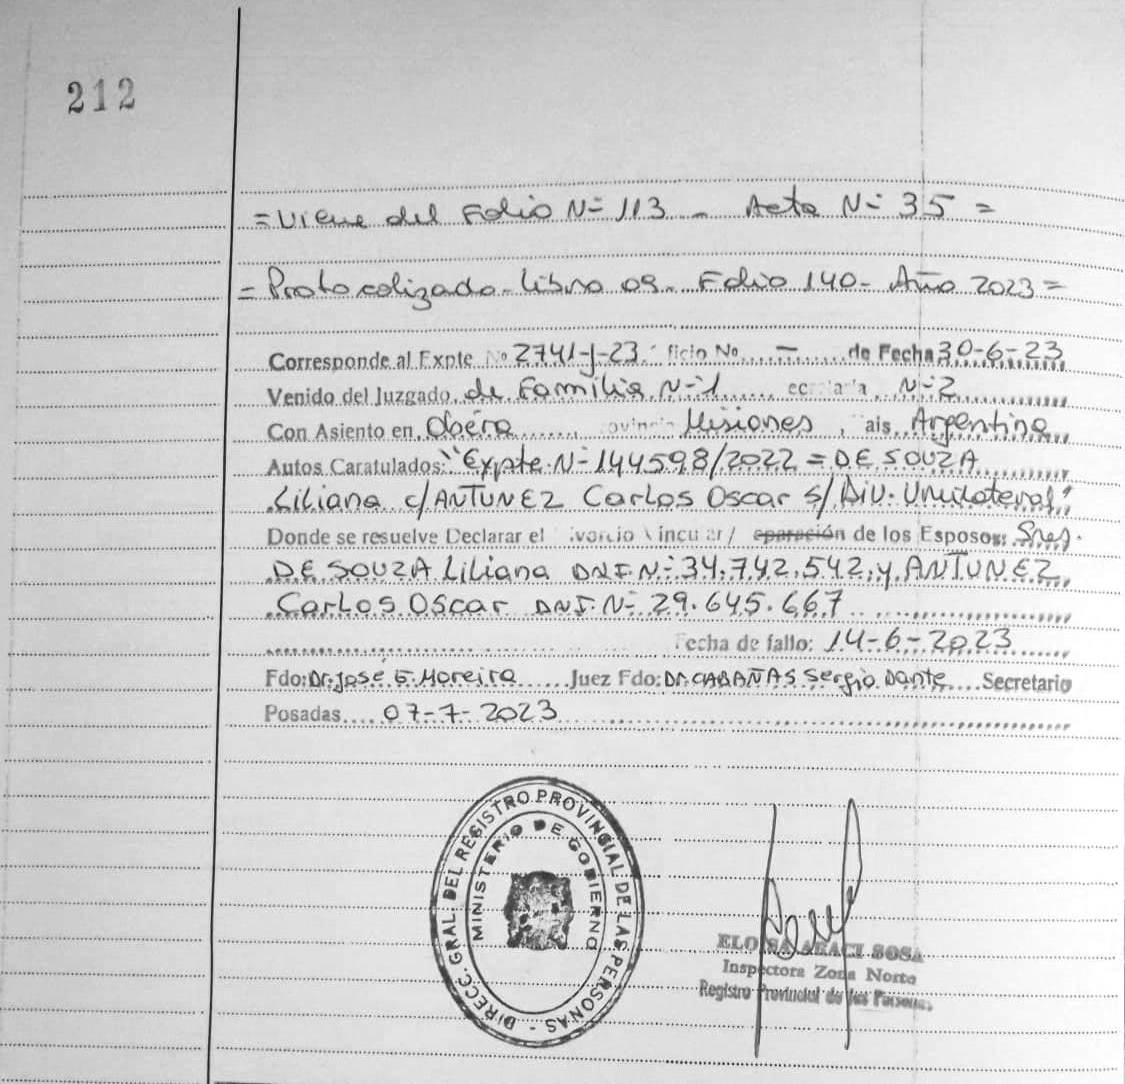 212
= Viene del Folio Nº 113 - Acta Nº 35 =
= Protocolizado - Libro 09 - Folio 140 - Año 2023 =
Corresponde al Expte Nº 2741-J-23 ficio No. - de Fecha 30-6-23
Venido del Juzgado de Familia Nº 1 Nº 2
Con Asiento en Oberá Misiones, ais Argentina
Autos Caratulados: "Expte. Nº 144598/2022 = DE SOUZA
Liliana c/ ANTUNEZ Carlos Oscar s/ Div. Unilateral"
Donde se resuelve Declarar el ivorcio Vincular/ eparación de los Esposos: Sres.
DE SOUZA Liliana DNI. Nº 34.742.542, y ANTUNEZ
Carlos Oscar DNI. Nº 29.645.667
Fecha de fallo: 14-6-2023
Fdo: Dr. José G. Moreira Juez Fdo: Dr. CABAÑAS Sergio Dante Secretario
Posadas 07-7-2023
DIRECC. GRAL. DEL REGISTRO PROVINCIAL DE LAS PERSONAS -
MINISTERIO DE GOBIERNO
ELOISA ARACI SOSA
Inspectora Zona Norte
Registro Provincial de las Personas